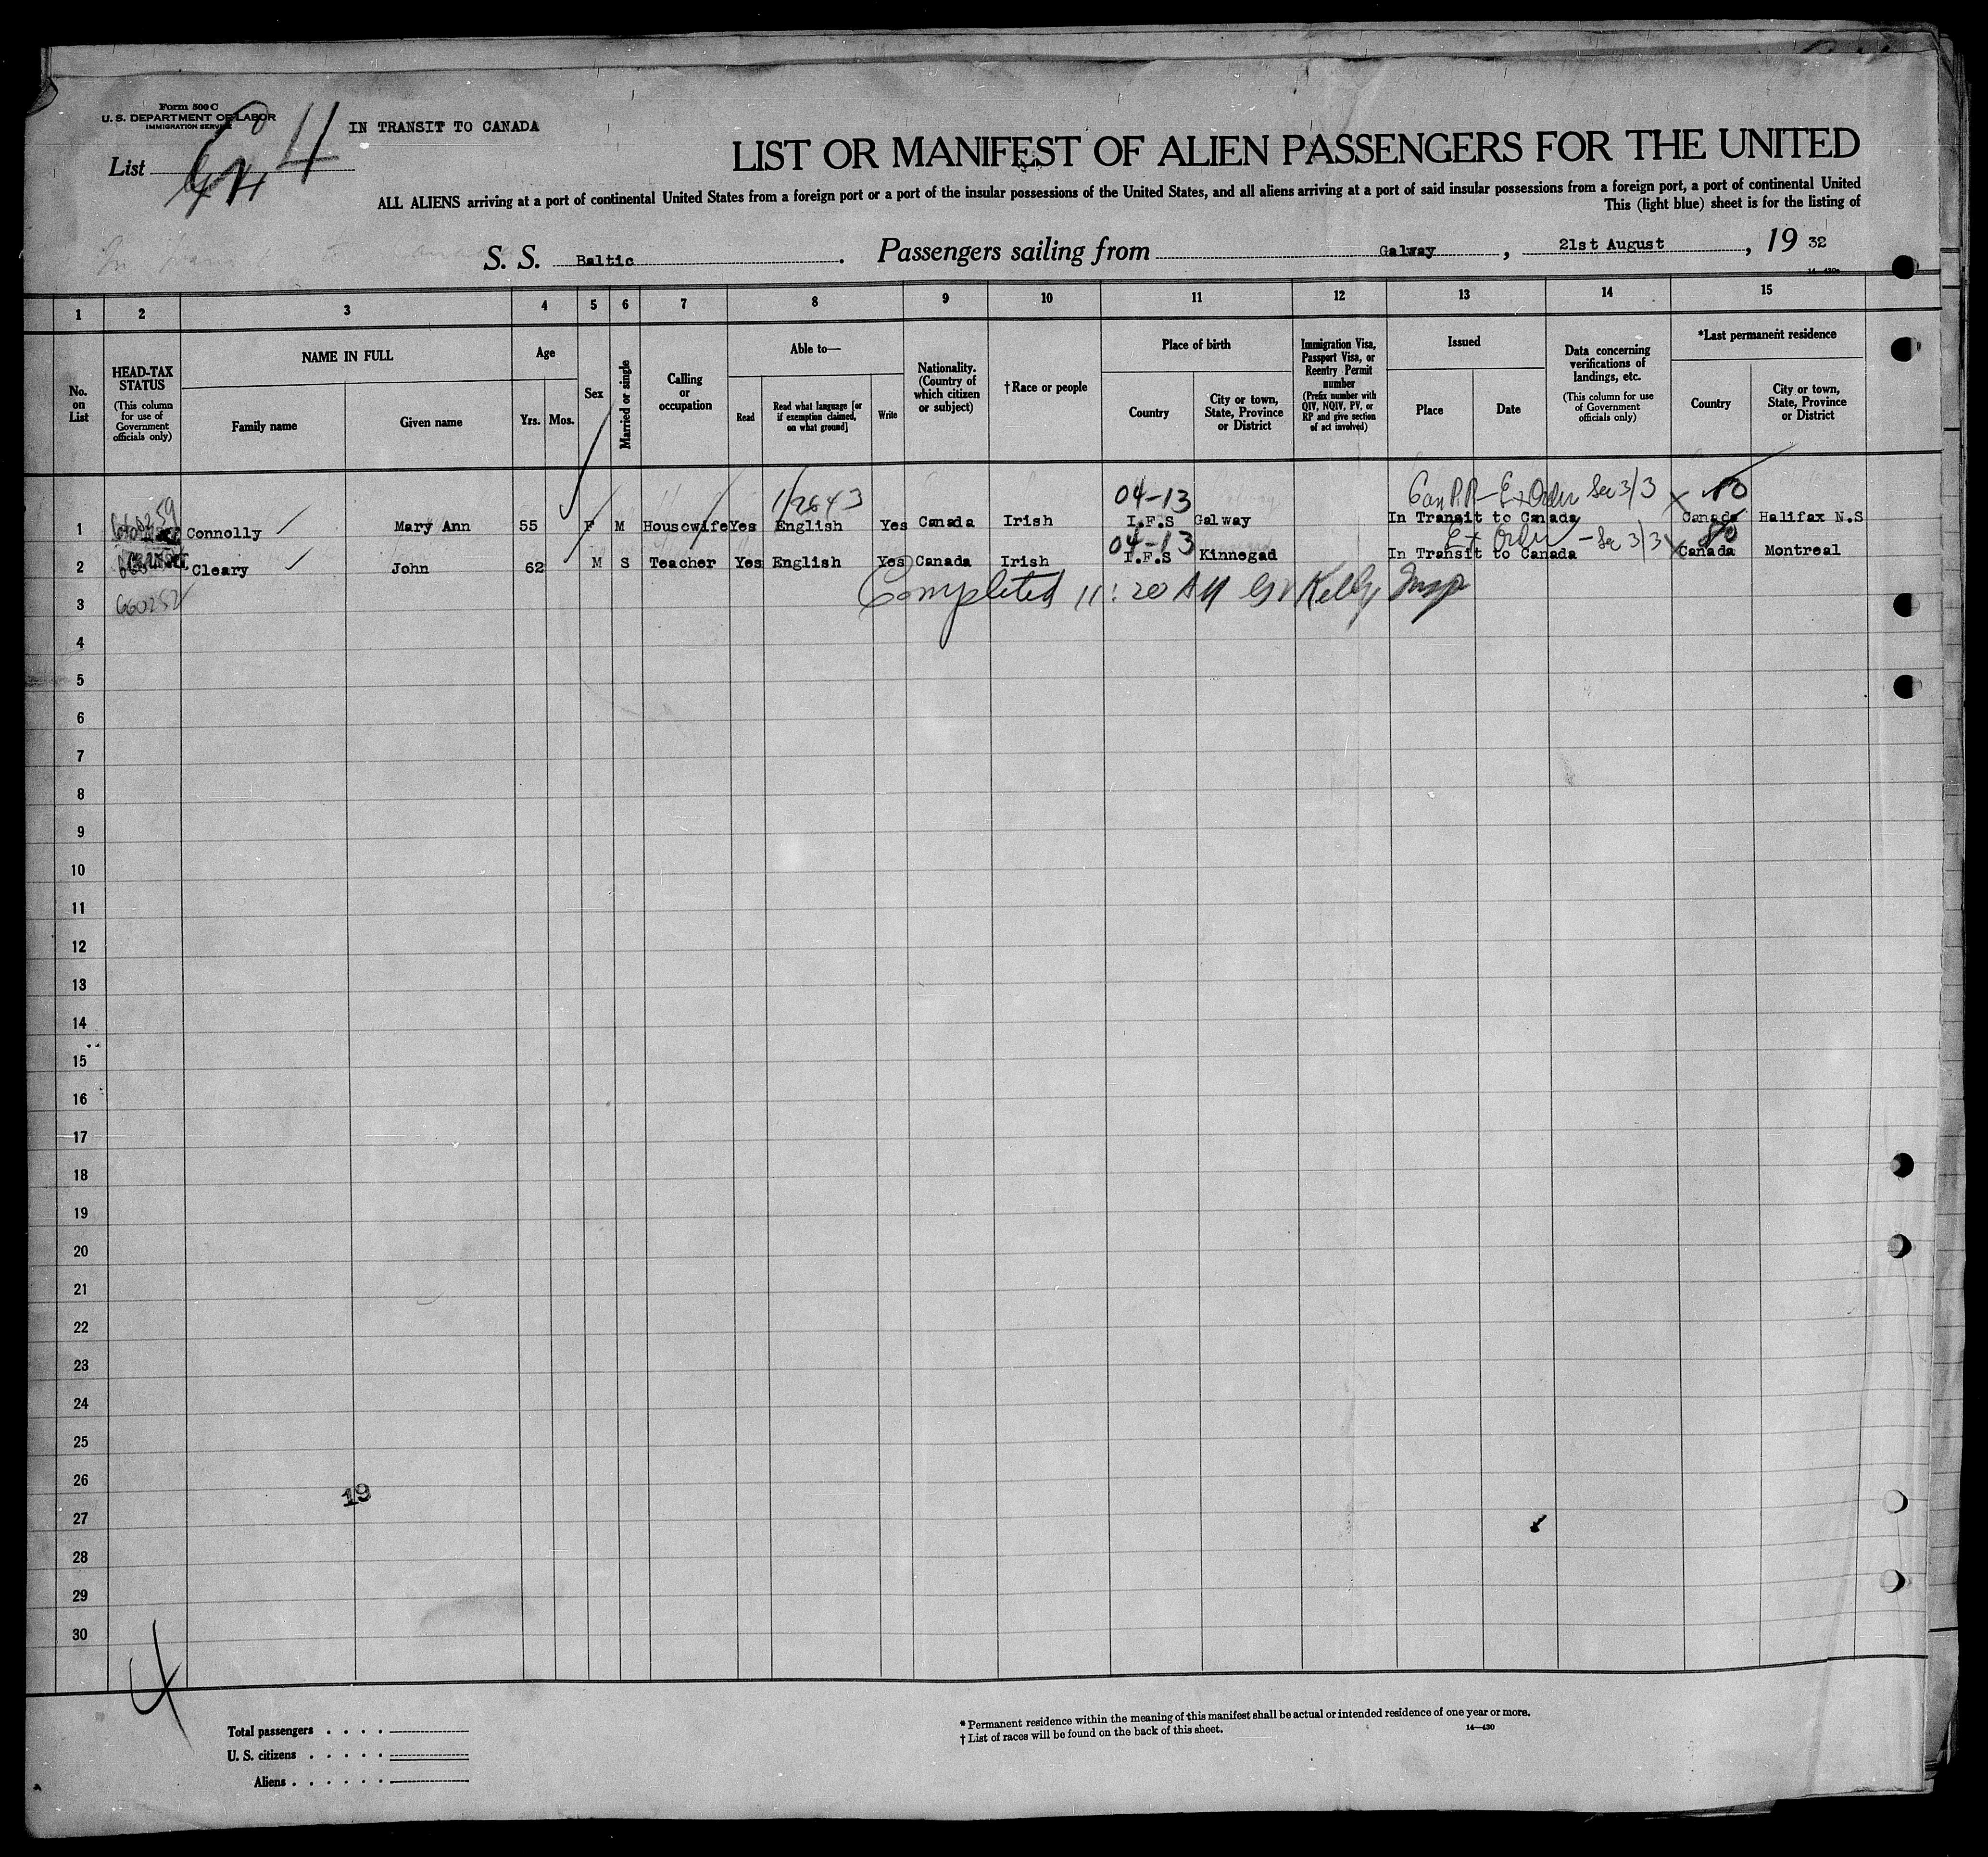 Form 500 C
U. S. DEPARTMENT OF LABOR
IMMIGRATION SERVICE
IN TRANSIT TO CANADA
List 4
LIST OR MANIFEST OF ALIEN PASSENGERS FOR THE UNITED
ALL ALIENS arriving at a port of continental United States from a foreign port or a port of the insular possessions of the United States, and all aliens arriving at a port of said insular possessions from a foreign port, a port of continental United
This (light blue) sheet is for the listing of
S. S. Baltic. Passengers sailing from Galway, 21st August, 19 32
14—430a
1 2 3 4 5 6 7 8 9 10 11 12 13 14 15
No. on List
HEAD-TAX STATUS (This column for use of Government officials only)
NAME IN FULL
Family name
Given name
Age
Yrs. Mos.
Sex
Married or single
Calling or occupation
Able to—
Read
Read what language [or if exemption claimed, on what ground]
Write
Nationality. (Country of which citizen or subject)
†Race or people
Place of birth
Country
City or town, State, Province or District
Immigration Visa, Passport Visa, or Reentry Permit number (Prefix number with QIV, NQIV, PV, or RP and give section of act involved)
Issued
Place
Date
Data concerning verifications of landings, etc. (This column for use of Government officials only)
*Last permanent residence
Country
City or town, State, Province or District
04-13 Can P.P. - Ex Order Sec 3/3
1 Connolly Mary Ann 55 F M Housewife Yes English Yes Canada Irish I.F.S Galway In Transit to Canada Canada Halifax N.S
04-13 Ex Order - Sec 3/3
2 Cleary John 62 M S Teacher Yes English Yes Canada Irish I.F.S Kinnegad In Transit to Canada Canada Montreal
3 660252 Completed 11:20 AM Kelly Insp
4
5
6
7
8
9
10
11
12
13
14
15
16
17
18
19
20
21
22
23
24
25
26
19
27
28
29
30
4
Total passengers . . . .
U. S. citizens . . . . .
Aliens . . . . . .
* Permanent residence within the meaning of this manifest shall be actual or intended residence of one year or more.
† List of races will be found on the back of this sheet.
14—430